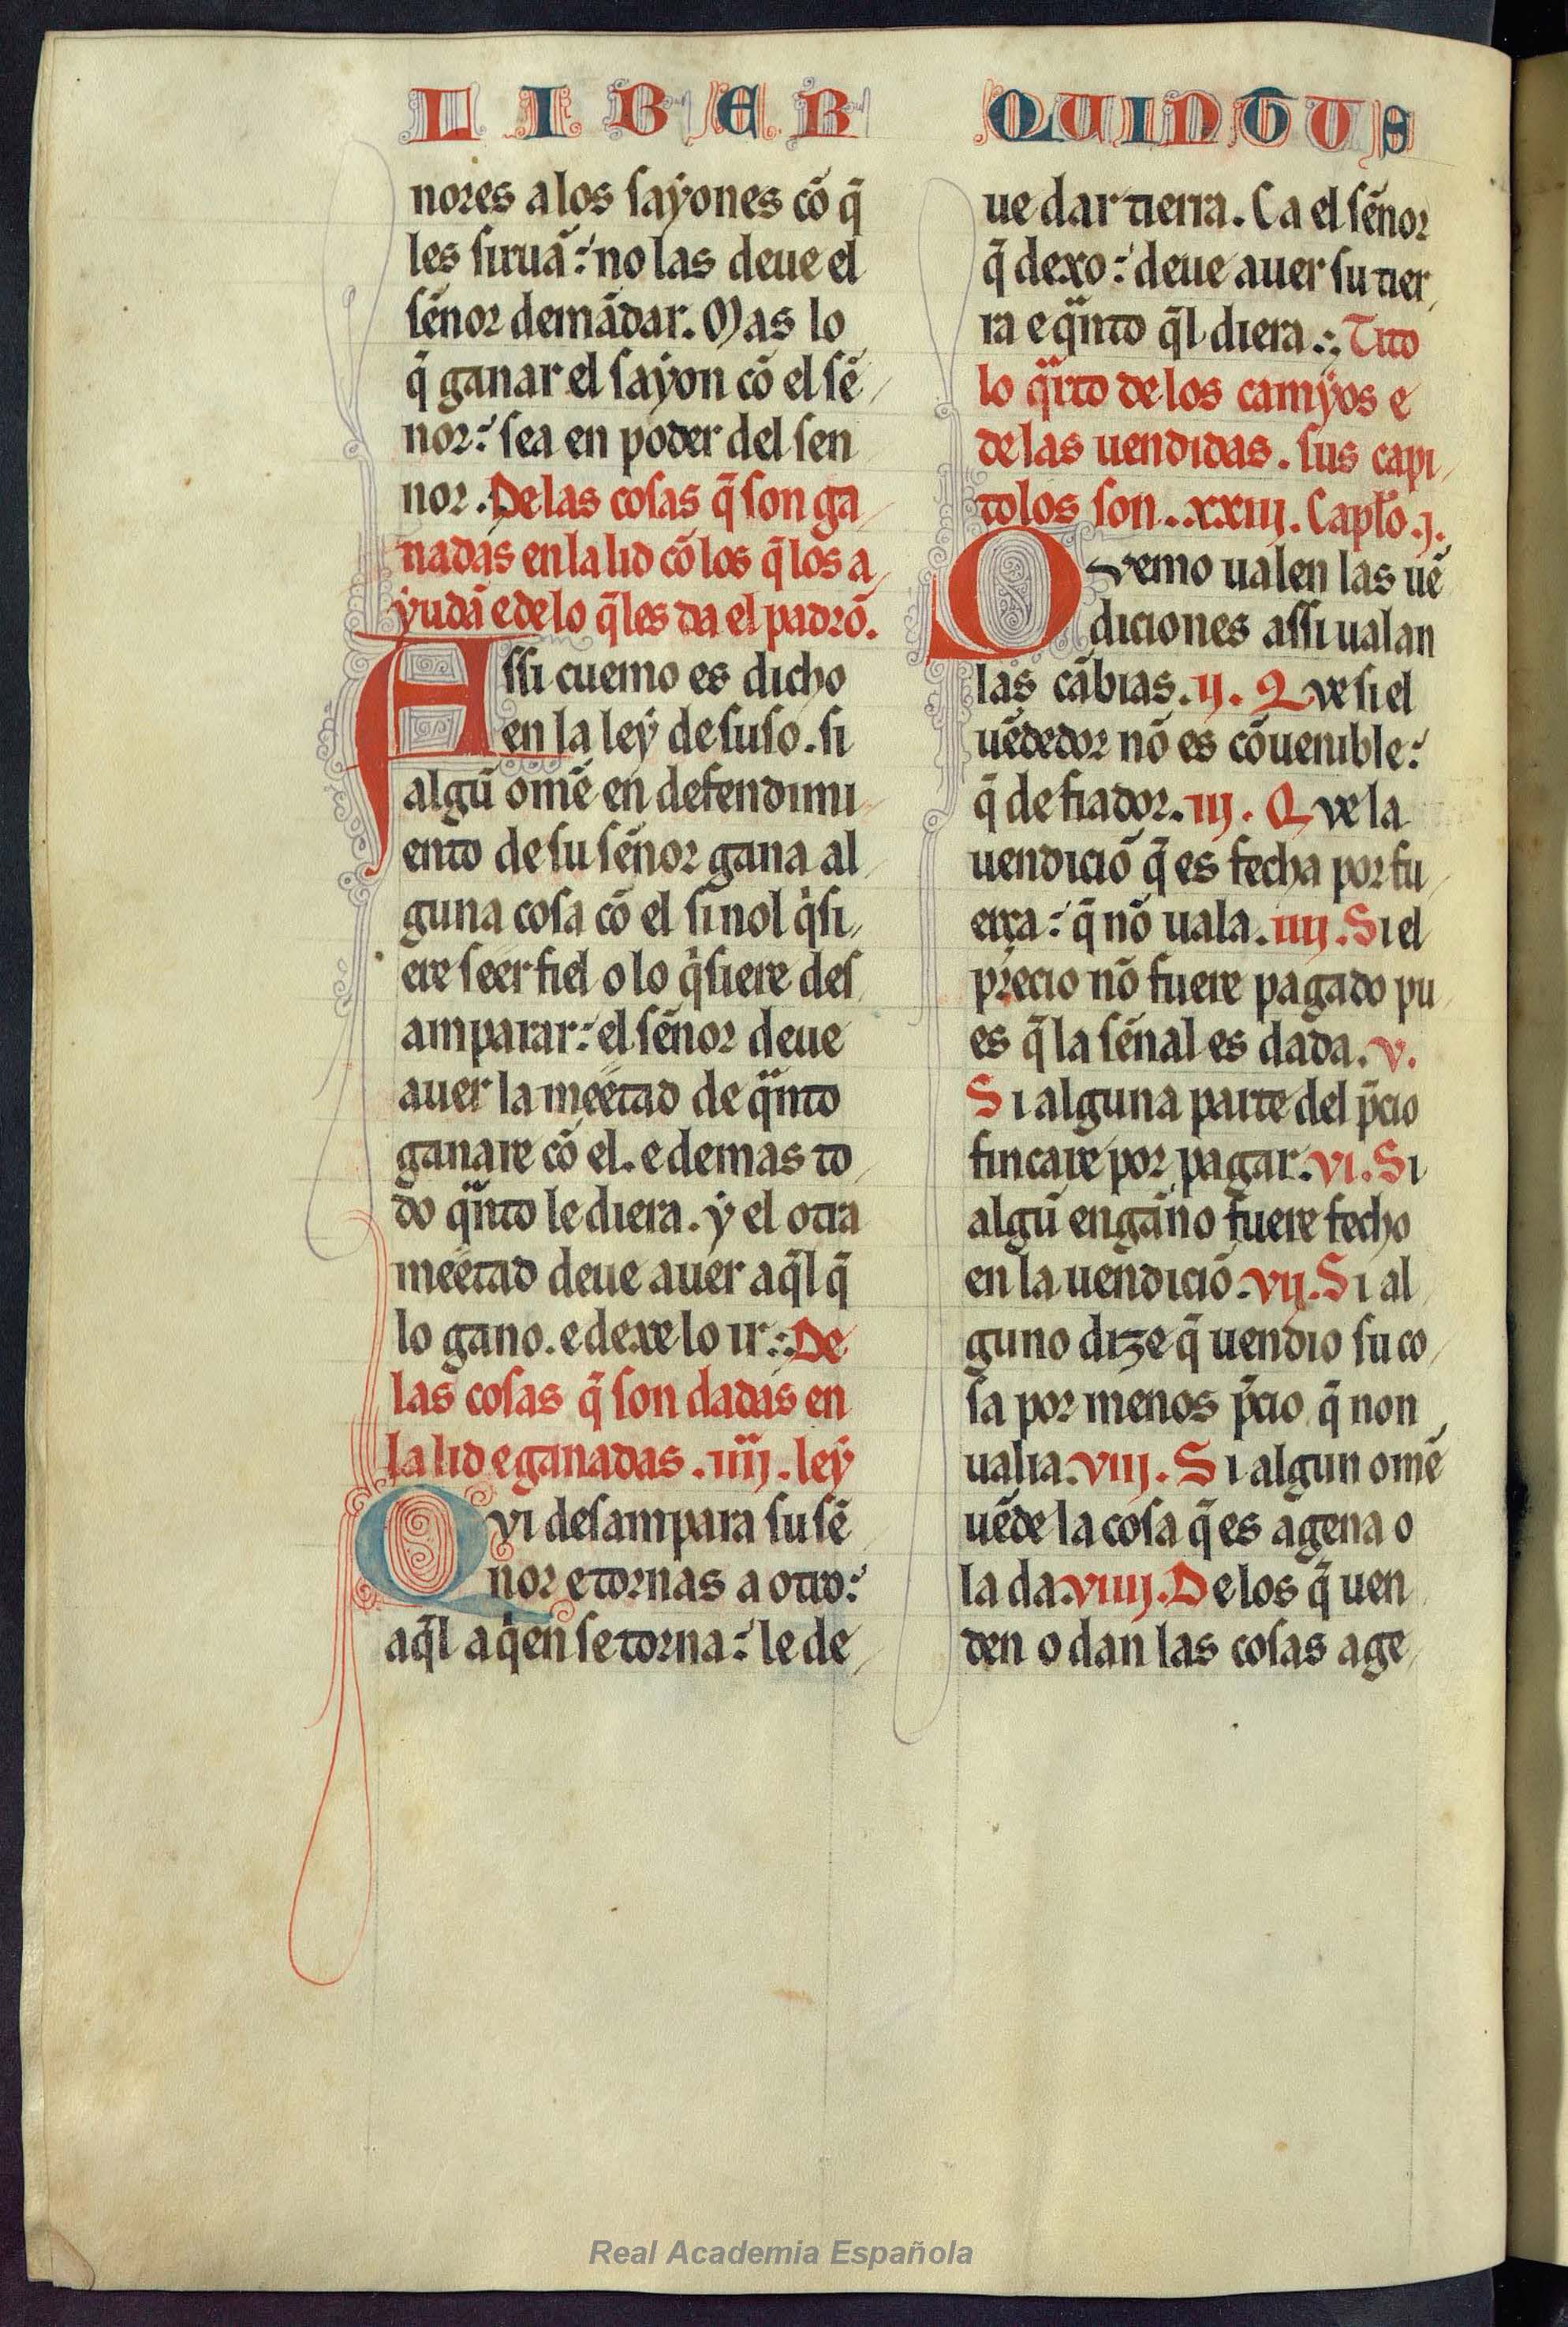 LIBER QUINTUS
nores a los saẏones cõ q̃
les siruã: no las deue el
sẽnor demãdar. Mas lo
q̃ ganar el saẏon cõ el sẽ
nor: sea en poder del sen
nor. De las cosas q̃ son ga
nadas en la lid cõ los q̃ los a
ẏudã e de lo q̃ les da el padrõ.
Assi cuemo es dicho
en la leẏ de suso. si
algũ omẽ en defendimi
ento de su sẽnor gana al
guna cosa cõ el si nol q̇si
ere seer fiel o lo q̇siere des
amparar: el sẽnor deue
auer la meetad de q̃nto
ganare cõ el. e demas to
do q̃nto le diera. ẏ el otra
meetad deue auer aq̃l q̃
lo gano. e dexe lo ir: De
las cosas q̃ son dadas en
la lid e ganadas. .iiij. leẏ
Qvi desampara su sẽ
nor e tornas a otro:
aq̃l a q̇en se torna: le de
ue dar tierra. Ca el sẽnor
q̃ dexo: deue auer su tier
ra e q̃nto q̃l diera: Tito
lo q̃rto de los camẏos e
de las uendidas. sus capi
tolos son. .xxiij. Capl̃o .j.
Qvemo ualen las uẽ
diciones assi ualan
las cãbias. ij. Qve si el
uẽdedor nõ es cõuenible:
q̃ de fiador. iij. Qve la
uendiciõ q̃ es fecha por fu
erça: q̃ nõ uala. iiij. Si el
precio nõ fuere pagado pu
es q̃ la sẽnal es dada. v.
Si alguna parte del p̃cio
fincare por pagar. vi. Si
algũ engãno fuere fecho
en la uendiciõ. vij. Si al
guno dize q̃ uendio su co
sa por menos p̃cio q̃ non
ualia. viij. Si algun omẽ
uẽde la cosa q̃ es agena o
la da. viiij. De los q̃ uen
den o dan las cosas age
Real Academia Española